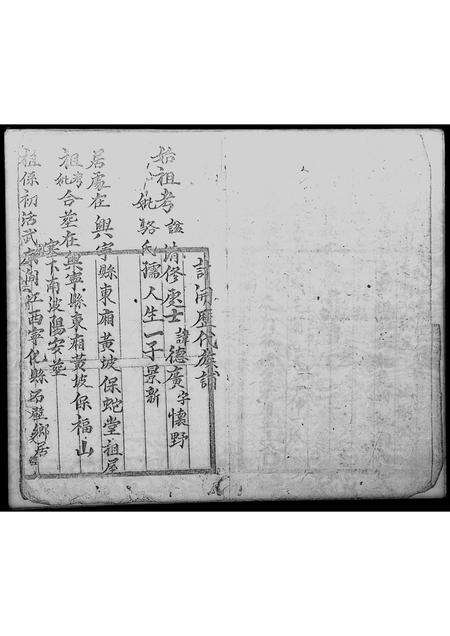 訂洞歷代族譜
始祖考諡清修處士諱德廣字懷野
妣駱氏孺人生一子景新
居處在興宁縣東廂黃坡保蛇堂祖屋
祖考妣合塟在興寧縣東廂黃坡保福山
寨下南波陽安塟
祖係初洪武年間江西寧化縣石壁鄉居